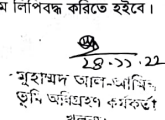 ম লিপিবদ্ধ করিতে হইবে।
২৪.১১.২২
মুহাম্মদ আল-আমিন
ভূমি অধিগ্রহণ কর্মকর্তা
খুলনা।